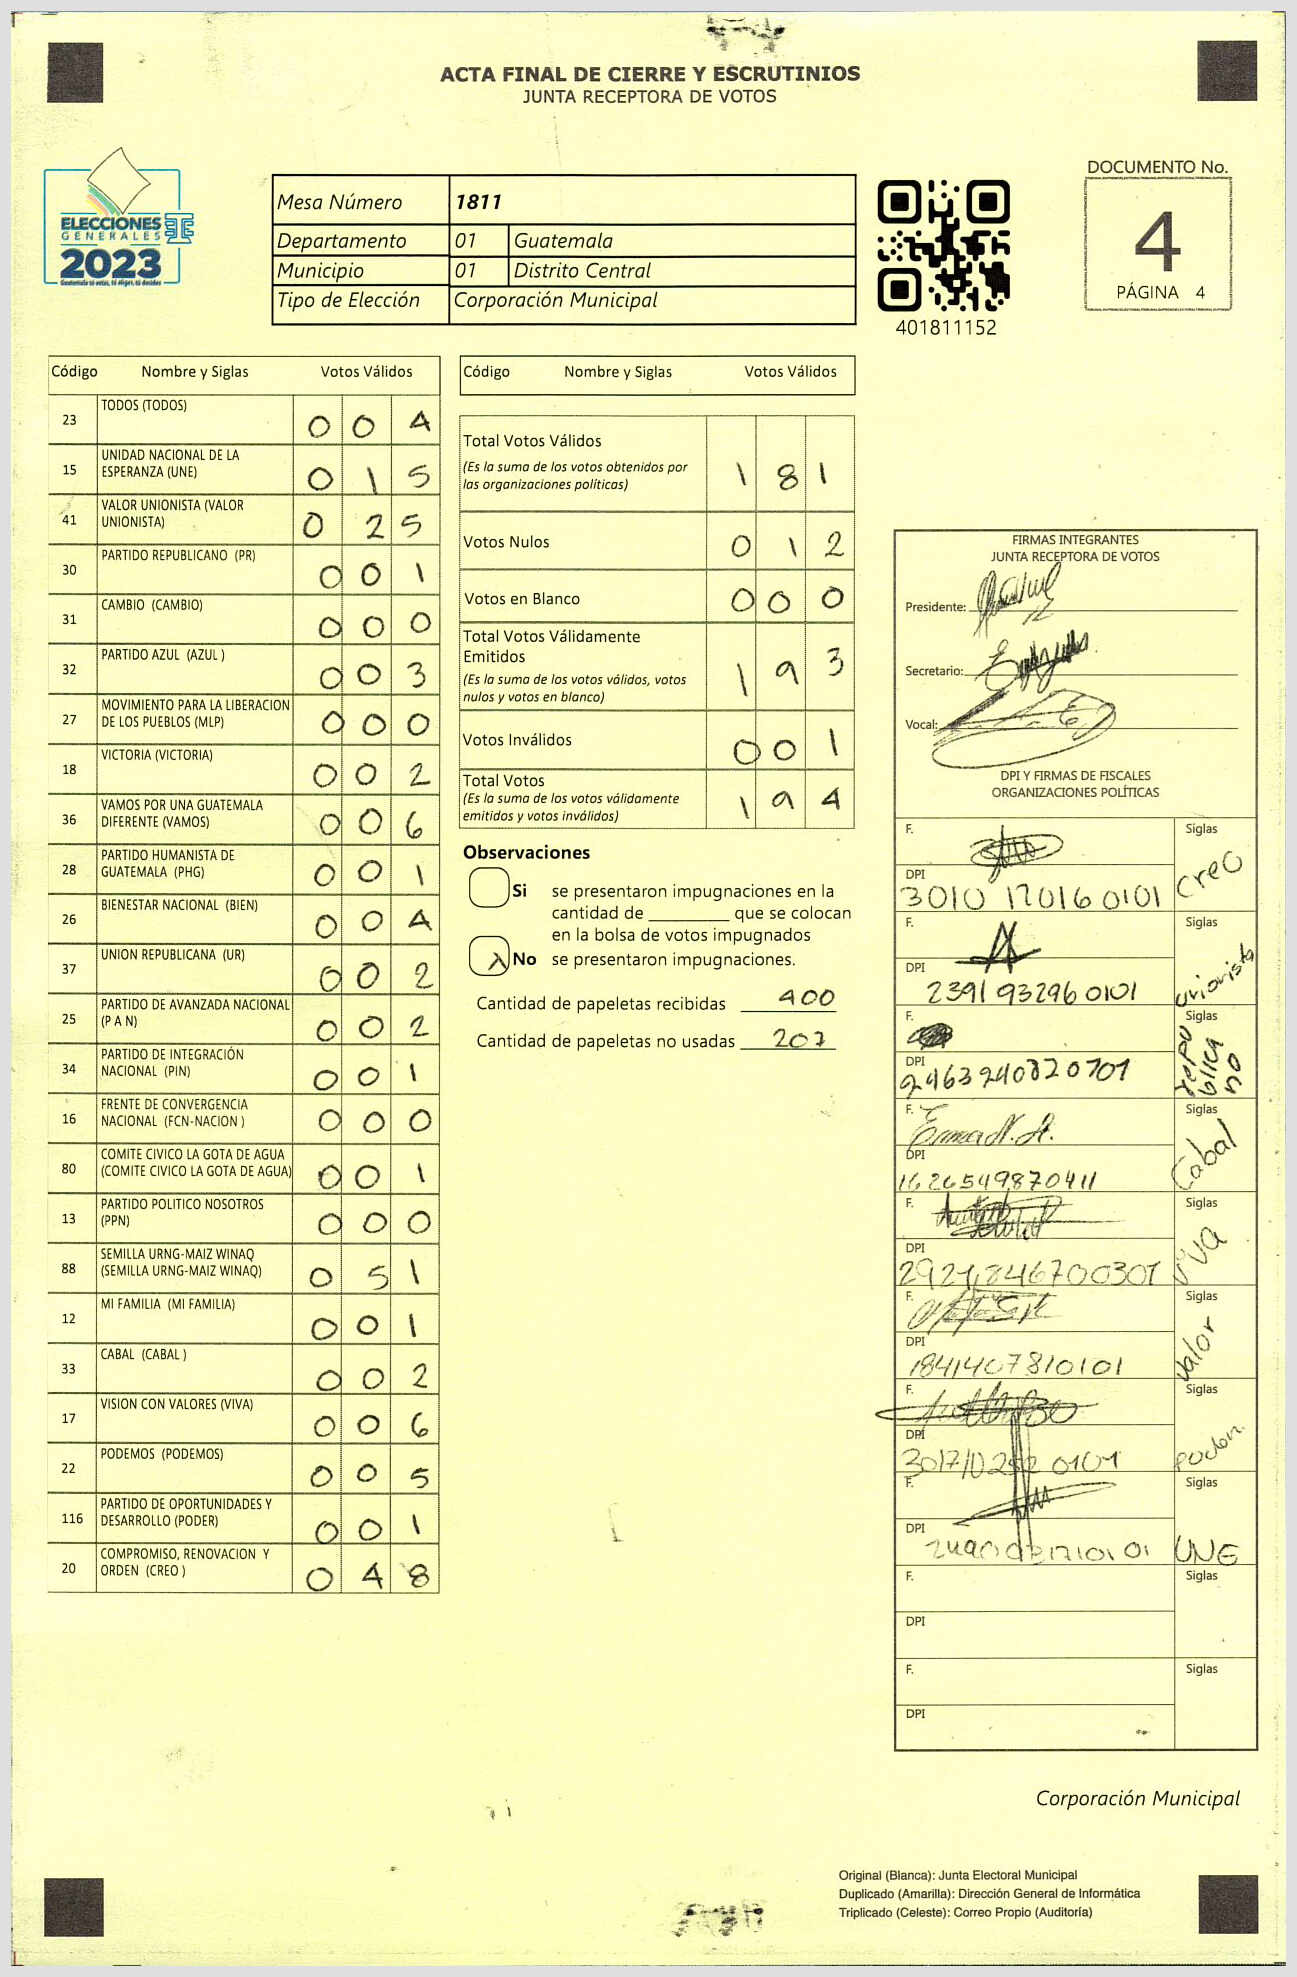 ACTA FINAL DE CIERRE Y ESCRUTINIOS
JUNTA RECEPTORA DE VOTOS
ELECCIONES
GENERALES
2023
Guatemala tú votas, tú eliges, tú decides
Mesa Número 1811
Departamento 01 Guatemala
Municipio 01 Distrito Central
Tipo de Elección Corporación Municipal
401811152
DOCUMENTO No.
4
PÁGINA 4
Código Nombre y Siglas Votos Válidos
23 TODOS (TODOS) 0 0 4
15 UNIDAD NACIONAL DE LA ESPERANZA (UNE) 0 1 5
41 VALOR UNIONISTA (VALOR UNIONISTA) 0 2 5
30 PARTIDO REPUBLICANO (PR) 0 0 1
31 CAMBIO (CAMBIO) 0 0 0
32 PARTIDO AZUL (AZUL ) 0 0 3
27 MOVIMIENTO PARA LA LIBERACION DE LOS PUEBLOS (MLP) 0 0 0
18 VICTORIA (VICTORIA) 0 0 2
36 VAMOS POR UNA GUATEMALA DIFERENTE (VAMOS) 0 0 6
28 PARTIDO HUMANISTA DE GUATEMALA (PHG) 0 0 1
26 BIENESTAR NACIONAL (BIEN) 0 0 4
37 UNION REPUBLICANA (UR) 0 0 2
25 PARTIDO DE AVANZADA NACIONAL (P A N) 0 0 2
34 PARTIDO DE INTEGRACIÓN NACIONAL (PIN) 0 0 1
16 FRENTE DE CONVERGENCIA NACIONAL (FCN-NACION ) 0 0 0
80 COMITE CIVICO LA GOTA DE AGUA (COMITE CIVICO LA GOTA DE AGUA) 0 0 1
13 PARTIDO POLITICO NOSOTROS (PPN) 0 0 0
88 SEMILLA URNG-MAIZ WINAQ (SEMILLA URNG-MAIZ WINAQ) 0 5 1
12 MI FAMILIA (MI FAMILIA) 0 0 1
33 CABAL (CABAL ) 0 0 2
17 VISION CON VALORES (VIVA) 0 0 6
22 PODEMOS (PODEMOS) 0 0 5
116 PARTIDO DE OPORTUNIDADES Y DESARROLLO (PODER) 0 0 1
20 COMPROMISO, RENOVACION Y ORDEN (CREO ) 0 4 8
Código Nombre y Siglas Votos Válidos
Total Votos Válidos 1 8 1
(Es la suma de los votos obtenidos por
las organizaciones políticas)
Votos Nulos 0 1 2
Votos en Blanco 0 0 0
Total Votos Válidamente
Emitidos 1 9 3
(Es la suma de los votos válidos, votos
nulos y votos en blanco)
Votos Inválidos 0 0 1
Total Votos 1 9 4
(Es la suma de los votos válidamente
emitidos y votos inválidos)
Observaciones
Si se presentaron impugnaciones en la
cantidad de _________ que se colocan
en la bolsa de votos impugnados
X No se presentaron impugnaciones.
Cantidad de papeletas recibidas 400
Cantidad de papeletas no usadas 207
FIRMAS INTEGRANTES
JUNTA RECEPTORA DE VOTOS
Presidente:
Secretario:
Vocal:
DPI Y FIRMAS DE FISCALES
ORGANIZACIONES POLÍTICAS
F. Siglas
DPI creo
3010 17016 0101
F. Siglas
DPI uniorista
2391 93296 0101
F. Siglas
DPI repu blica no
2463240820701
F. Siglas
DPI Cabal
1626549870411
F. Siglas
DPI viva
2921846700301
F. Siglas
DPI valor
1841407810101
F. Siglas
DPI
F. Siglas
DPI UNE
F. Siglas
DPI
F. Siglas
DPI
Corporación Municipal
Original (Blanca): Junta Electoral Municipal
Duplicado (Amarilla): Dirección General de Informática
Triplicado (Celeste): Correo Propio (Auditoría)